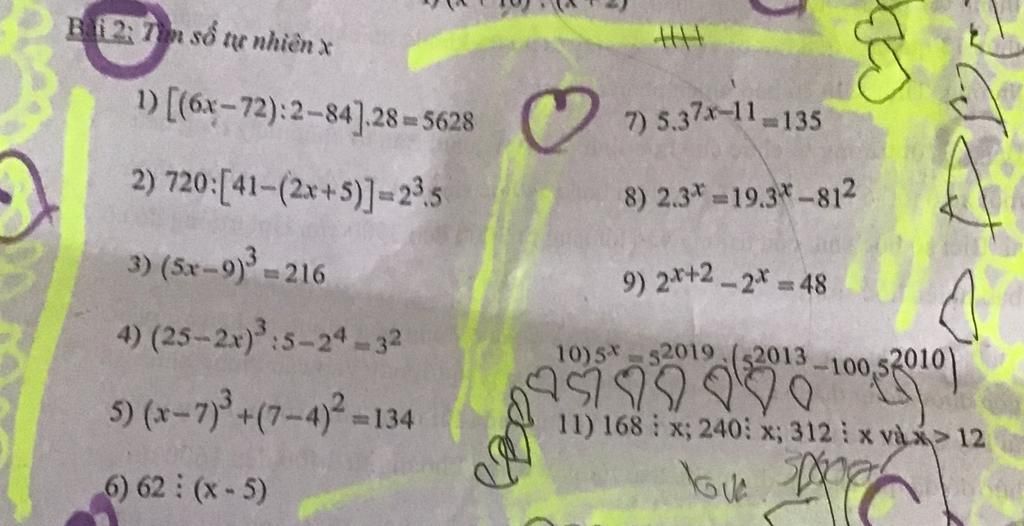 Bài 2: Tìm số tự nhiên x
1) [(6x−72):2−84].28=5628
2) 720:[41−(2x+5)]=2³.5
3) (5x−9)³=216
4) (25−2x)³:5−2⁴=3²
5) (x−7)³+(7−4)²=134
6) 62 ⋮ (x - 5)
7) 5.3⁷ˣ⁻¹¹=135
8) 2.3ˣ=19.3ˣ−81²
9) 2ˣ⁺²−2ˣ=48
10) 5ˣ=5²⁰¹⁹:(5²⁰¹³−100.5²⁰¹⁰)
11) 168 ⋮ x; 240⋮ x; 312 ⋮ x và x > 12